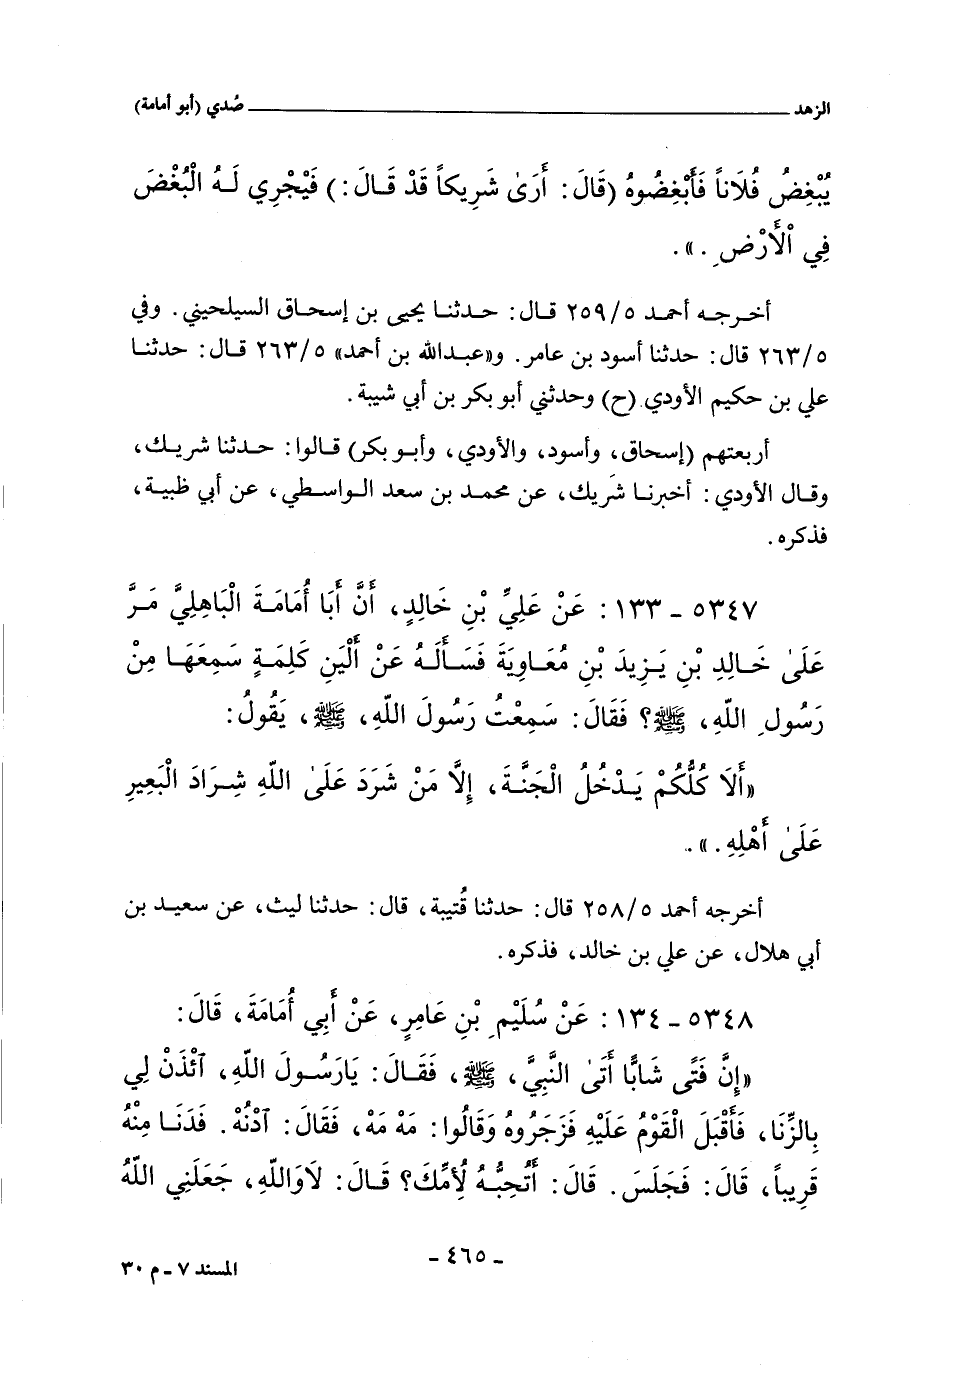 الزهد ــــــــــــــــــــــــــــــــــــــــــــــــ صُدي (أبو أمامة)
يُبْغِضُ فُلَاناً فَأَبْغِضُوهُ (قَالَ: أَرَىٰ شَرِيكاً قَدْ قَالَ:) فَيْجْرِي لَهُ الْبُغْضَ
فِي الْأَرْضِ.».
أخرجه أحمد ٢٥٩/٥ قال: حدثنا يحيى بن إسحاق السيلحيني. وفي
٢٦٣/٥ قال: حدثنا أسود بن عامر. و«عبدالله بن أحمد» ٢٦٣/٥ قال: حدثنا
علي بن حكيم الأودي (ح) وحدثني أبو بكر بن أبي شيبة.
أربعتهم (إسحاق، وأسود، والأودي، وأبو بكر) قالوا: حدثنا شريك،
وقال الأودي: أخبرنا شريك، عن محمد بن سعد الواسطي، عن أبي ظبية،
فذكره.
٥٣٤٧ - ١٣٣: عَنْ عَلِيِّ بْنِ خَالِدٍ، أَنَّ أَبَا أُمَامَةَ الْبَاهِلِيَّ مَرَّ
عَلَىٰ خَالِدِ بْنِ يَزِيدَ بْنِ مُعَاوِيَةَ فَسَأَلَهُ عَنْ أَلْيَنِ كَلِمَةٍ سَمِعَهَا مِنْ
رَسُولِ اللّهِ، ﷺ؟ فَقَالَ: سَمِعْتُ رَسُولَ اللّهِ، ﷺ، يَقُولُ:
«أَلَا كُلُّكُمْ يَدْخُلُ الْجَنَّةَ، إِلَّا مَنْ شَرَدَ عَلَىٰ اللّهِ شِرَادَ الْبَعِيرِ
عَلَىٰ أَهْلِهِ.».
أخرجه أحمد ٢٥٨/٥ قال: حدثنا قُتيبة، قال: حدثنا ليث، عن سعيد بن
أبي هلال، عن علي بن خالد، فذكره.
٥٣٤٨ - ١٣٤: عَنْ سُلَيْمِ بْنِ عَامِرٍ، عَنْ أَبِي أُمَامَةَ، قَالَ:
«إِنَّ فَتًى شَابًّا أَتَىٰ النَّبِيَّ، ﷺ، فَقَالَ: يَارَسُولَ اللّهِ، ٱئْذَنْ لِي
بِالزِّنَا، فَأَقْبَلَ الْقَوْمُ عَلَيْهِ فَزَجَرُوهُ وَقَالُوا: مَهْ مَهْ، فَقَالَ: ٱدْنُهْ. فَدَنَا مِنْهُ
قَرِيباً، قَالَ: فَجَلَسَ. قَالَ: أَتُحِبُّهُ لِأُمِّكَ؟ قَالَ: لاَوَاللّهِ، جَعَلَنِي اللّهُ
- ٤٦٥ -
المسند ٧ - م ٣٠